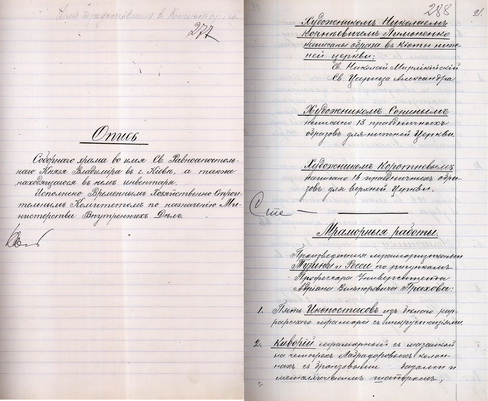 277
Опись
Соборнаго храма во имя Св. Равноапостоль-
наго Князя Владимира въ г. Кіевѣ, а также
находящагося въ немъ инвентаря.
Исполнено Временнымъ Хозяйственно-Строи-
тельнымъ Комитетомъ по назначенію Ми-
нистерства Внутреннихъ Дѣлъ.
288
21.
Художникомъ Николаемъ
Корниліевичемъ Пимоненко
написаны образа въ кіоты ниж-
ней церкви:
Св. Николай Мирликійскій
Св. Царица Александра
Художникомъ
написано 15 праздничныхъ
образовъ для нижней Церкви.
Художникомъ
написано 16 праздничныхъ обра-
зовъ для верхней Церкви.
Мраморныя работы
Произведенныя
и Росси по рисункамъ
Профессора Университета
Адріана Викторовича Прахова:
1. Пять Иконостасовъ изъ бѣлаго кар-
рарскаго мрамора съ инкрустаціями
2. Киворій мраморный съ мозаикой
на четырехъ Лабрадоровыхъ колон-
нахъ съ бронзовыми базами и
металлическимъ шатромъ,